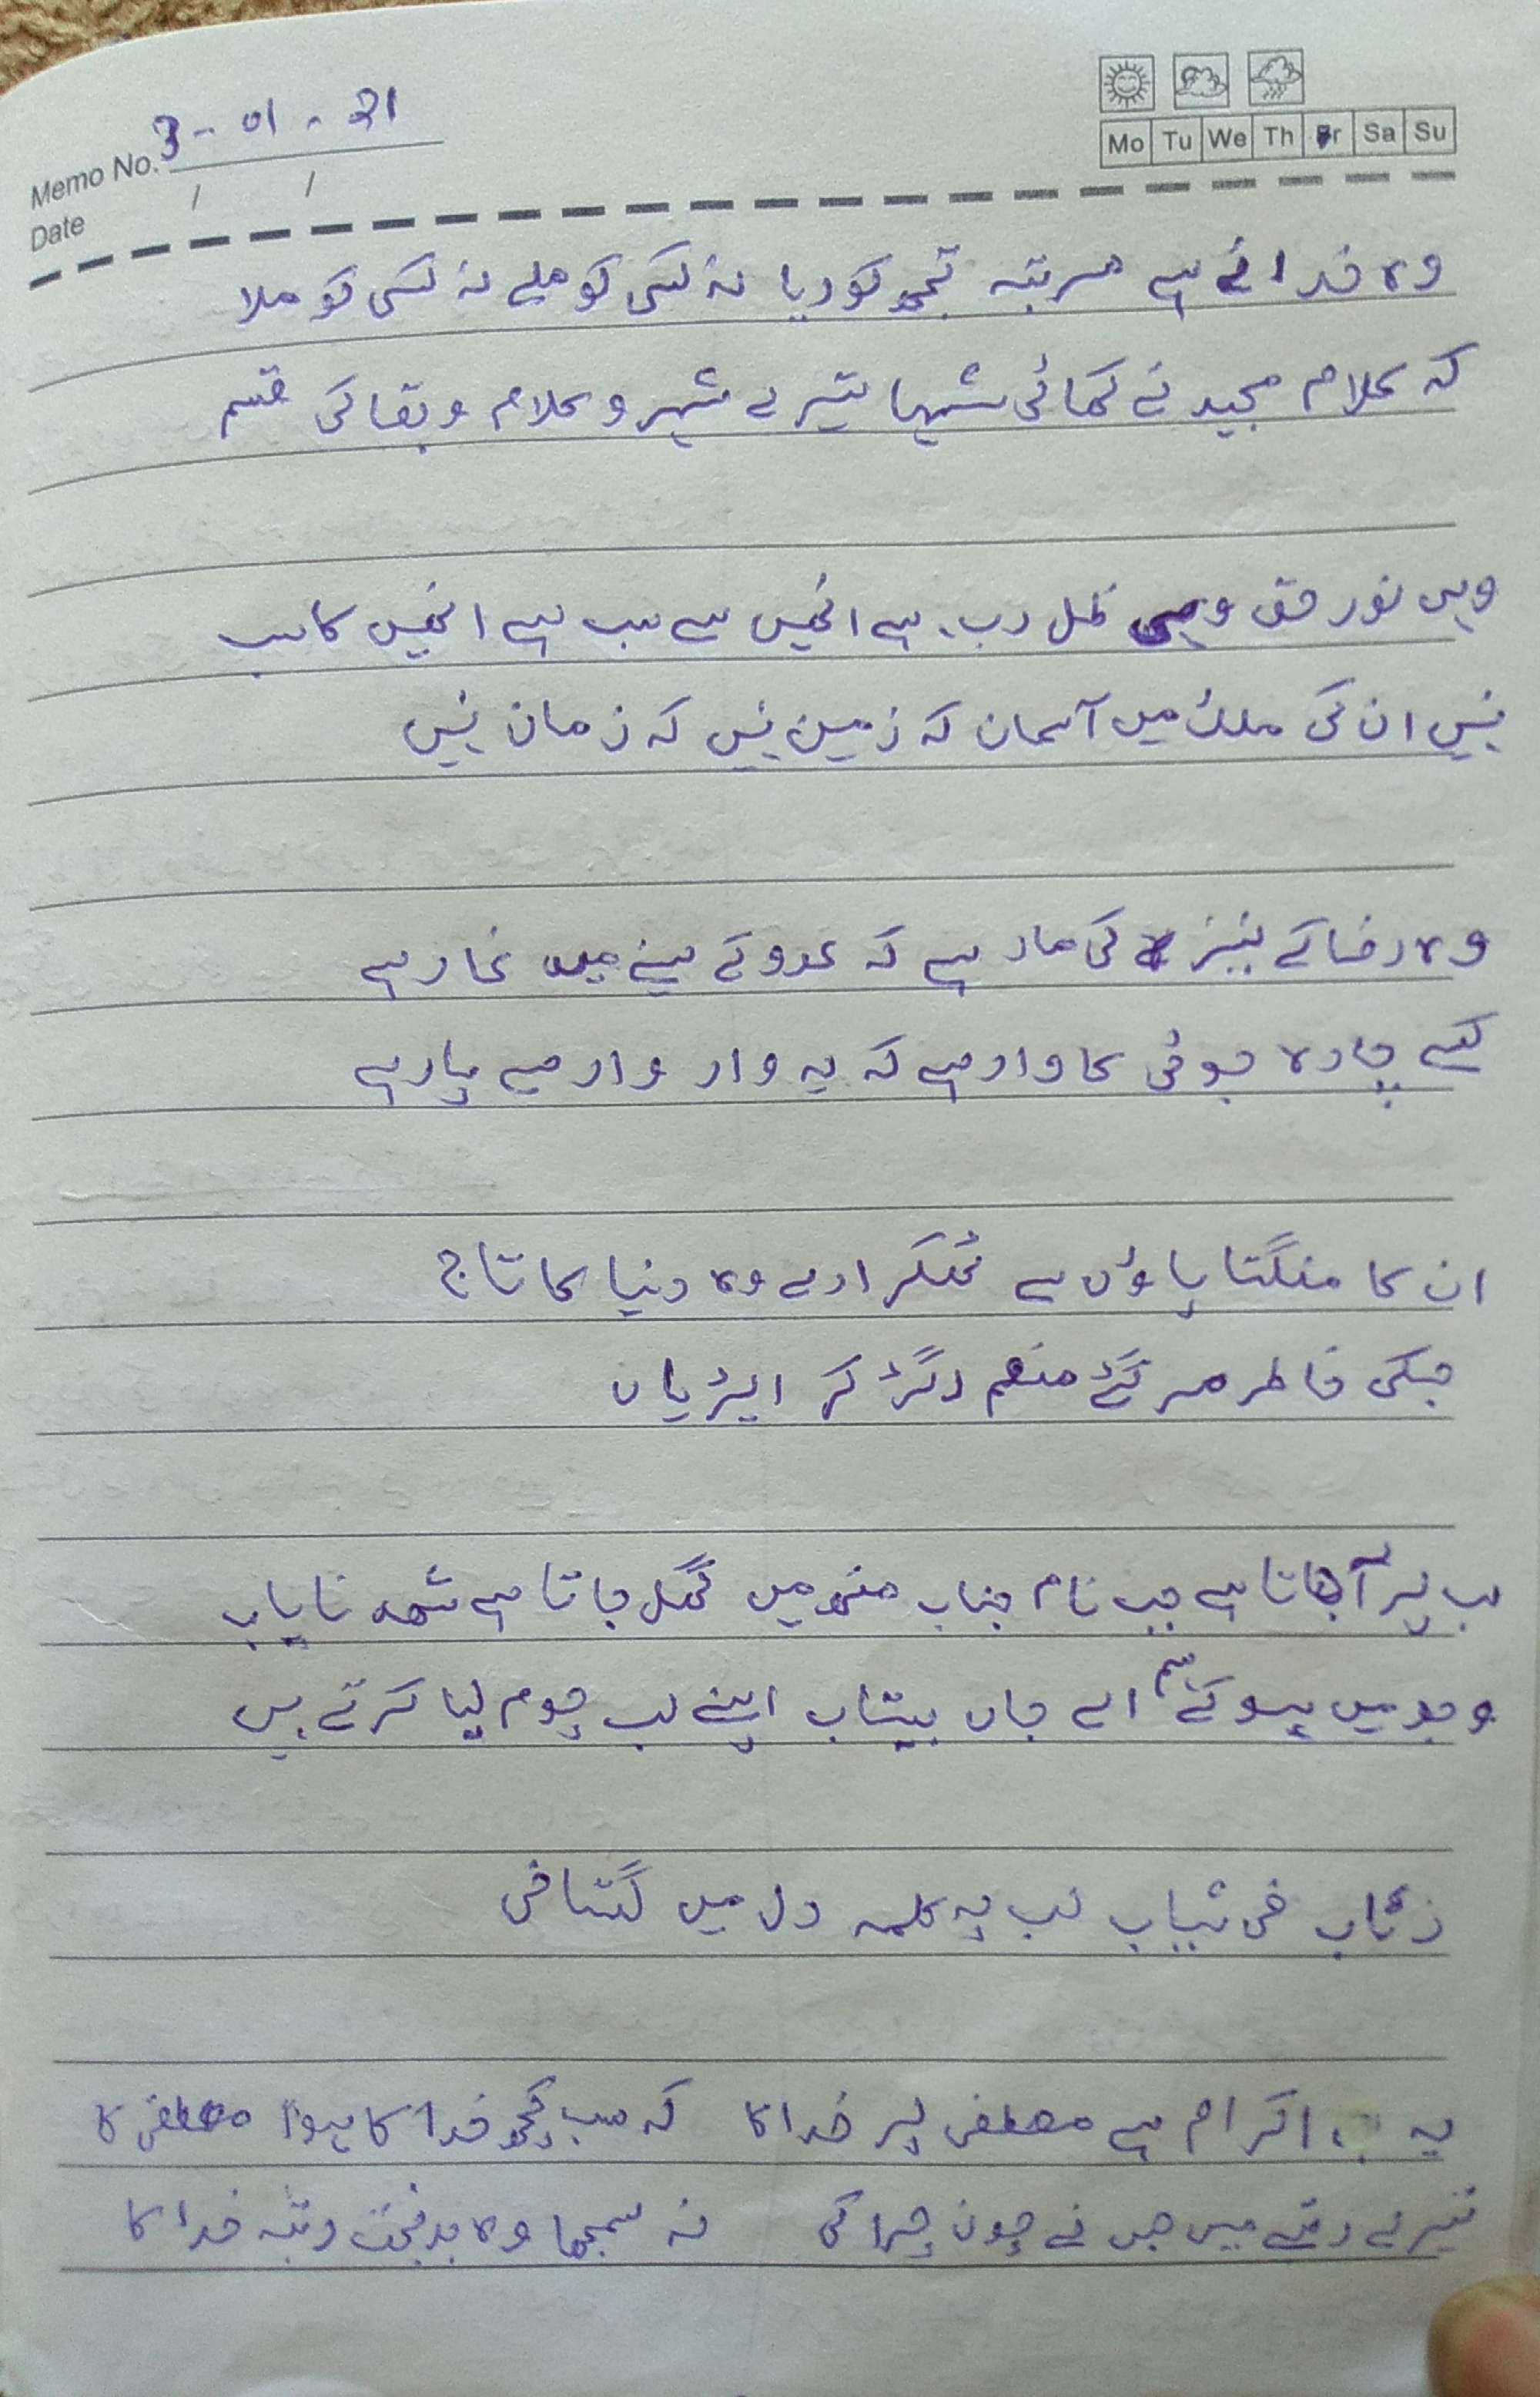 Memo No. 3-01-21
Mo Tu We Th Fr Sa Su
Date / /
وہ خدا نے ہے مرتبہ تجھ کو دیا نہ کسی کو ملے نہ کسی کو ملا
کہ کلام مجید نے کھائی شہا تیرے شہر و کلام و بقا کی قسم
وہی نور حق وہی ظل رب ہے انھیں سے سب ہے انھیں کا سب
نہیں ان کی ملک میں آسمان کہ زمین نہیں کہ زمان نہیں
وہ رضا کے نیزہ کی مار ہے کہ عدو کے سینے میں غار ہے
کسے چارہ جوئی کا وار ہے کہ یہ وار وار سے پار ہے
ان کا منگتا پاؤں سے ٹھکرا دے وہ دنیا کا تاج
جسکی خاطر مر گئے منعم رگڑ کر ایڑیاں
لب پر آجاتا ہے جب نام جناب منھ میں گھل جاتا ہے شہد نایاب
وجد میں ہو کے ہم اے جاں بیتاب اپنے لب چوم لیا کرتے ہیں
ذئاب فی ثیاب لب پہ کلمہ دل میں گستاخی
یہ اکرام ہے مصطفی پر خدا کا کہ سب کچھ خدا کا ہوا مصطفی کا
تیرے رتبے میں جس نے چون چرا کی نہ سمجھا وہ بدبخت رتبہ خدا کا